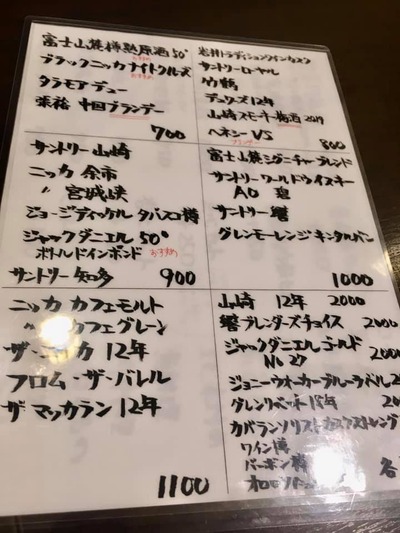 富士山麓樽熟原酒50°
おすすめ
ブラックニッカナイトクルーズ
おすすめ
タラモアデュー
張裕 中国ブランデー
700
岩井トラディションワインカスク
サントリーローヤル
竹鶴
デュワーズ12年
山崎スモーキー梅酒2019
ヘネシー VS
ブランデー
800
サントリー 山崎
ニッカ 余市
〃 宮城峡
ジョージディッケル タバスコ樽
ジャックダニエル 50°
ボトルドインボンド
おすすめ
サントリー知多
900
富士山麓シグニチャーブレンド
サントリーワールドウイスキー
AO 碧
サントリー 響
グレンモーレンジ キンタルバン
1000
ニッカ カフェモルト
〃 カフェグレーン
ザ・ニッカ 12年
フロム・ザ・バレル
ザ マッカラン 12年
1100
山崎 12年 2000
響ブレンダーズチョイス 2000
ジャックダニエルゴールド
No 27 2000
ジョニーウォーカーブルーラベル
グレンリベット18年
カバランソリストカスクストレングス
ワイン樽
バーボン樽
オロロソ
各